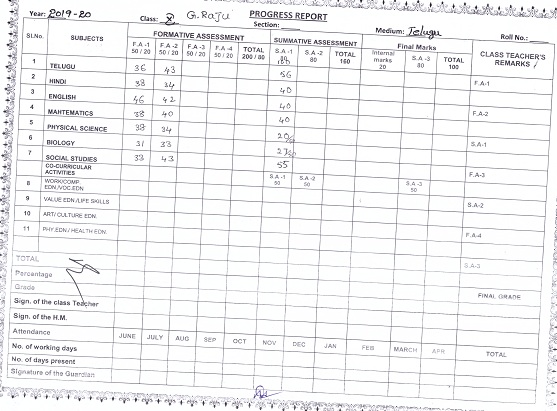 Year: 2019-20 Class: X G. RAJU PROGRESS REPORT
Section: Medium: Telugu Roll No.:
Sl.No. SUBJECTS FORMATIVE ASSESSMENT SUMMATIVE ASSESSMENT Final Marks CLASS TEACHER'S REMARKS
F.A -1 50 / 20 F.A -2 50 / 20 F.A -3 50 / 20 F.A -4 50 / 20 TOTAL 200 / 80 S.A -1 80 S.A -2 80 TOTAL 160 Internal marks 20 S.A -3 80 TOTAL 100
1 TELUGU 36 43 56 F.A-1
2 HINDI 38 34 40
3 ENGLISH 46 42 40 F.A-2
4 MAHTEMATICS 38 40 40
5 PHYSICAL SCIENCE 38 34 20 S.A-1
6 BIOLOGY 31 33 27
7 SOCIAL STUDIES 33 43 55 F.A-3
CO-CURRICULAR ACTIVITIES S.A -1 50 S.A -2 50 S.A -3 50
8 WORK/COMP. EDN./VOC.EDN.
9 VALUE EDN / LIFE SKILLS S.A-2
10 ART/ CULTURE EDN.
11 PHY.EDN / HEALTH EDN. F.A-4
TOTAL S.A-3
Percentage
Grade FINAL GRADE
Sign. of the class Teacher
Sign. of the H.M.
Attendance JUNE JULY AUG SEP OCT NOV DEC JAN FEB MARCH APR TOTAL
No. of working days
No. of days present
Signature of the Guardian